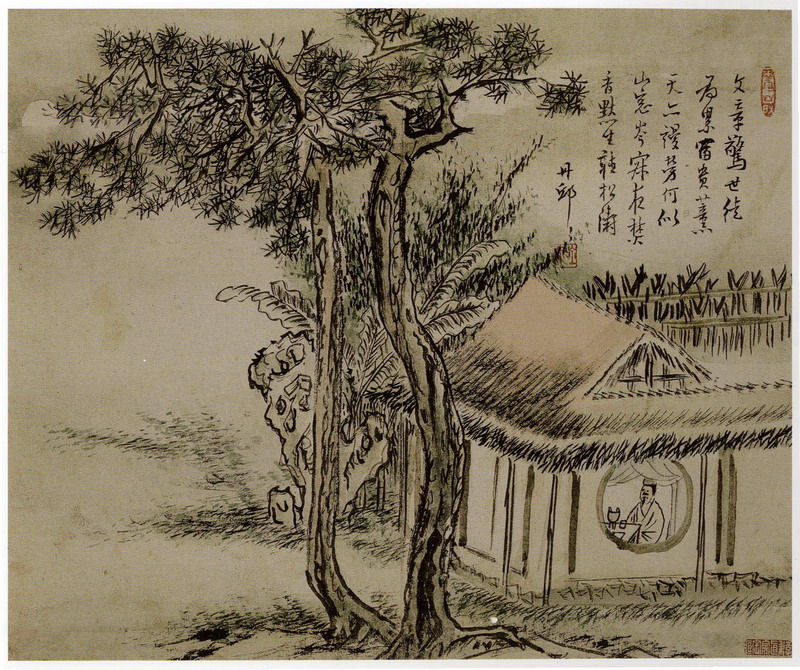 文章驚世徒
為累富貴薰
天亦謾勞何似
山窓岑寂夜焚
香默坐聽松濤
丹邱